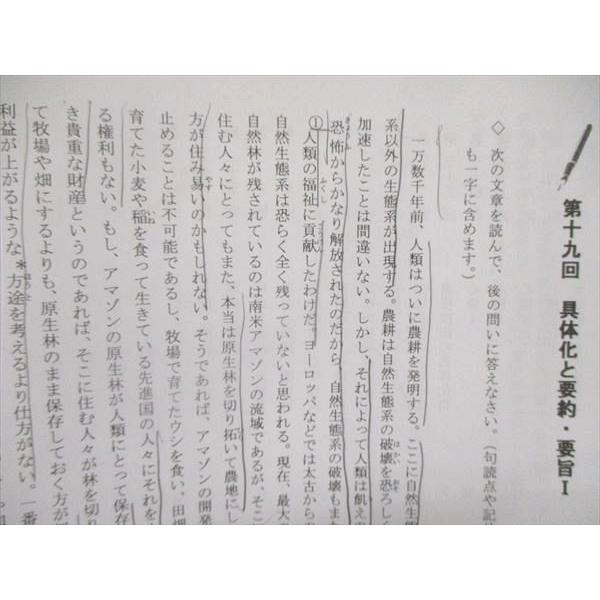 第十九回　具体化と要約・要旨Ⅰ
◇　次の文章を読んで、後の問いに答えなさい。（句読点や記
も一字に含めます。）
一万数千年前、人類はついに農耕を発明する。ここに自然生
系以外の生態系が出現する。農耕は自然生態系の破壊を恐ろしく
加速したことは間違いない。しかし、それによって人類は飢え
恐怖からかなり解放されたのだから、自然生態系の破壊もま
①人類の福祉に貢献したわけだ。ヨーロッパなどでは太古から
自然生態系は恐らく全く残っていないと思われる。現在、最大
自然林が残されているのは南米アマゾンの流域であるが、そこ
住む人々にとってもまた、本当は原生林を切り拓いて農地にし
方が住み易いのかもしれない。そうであれば、アマゾンの開発
止めることは不可能であるし、牧場で育てたウシを食い、田畑
育てた小麦や稲を食って生きている先進国の人々にそれを
る権利もない。もし、アマゾンの原生林が人類にとって保存
き貴重な財産というのであれば、そこに住む人々が林を切り
て牧場や畑にするよりも、原生林のまま保存しておく方が
利益が上がるような＊方途を考えるより仕方がない。一番